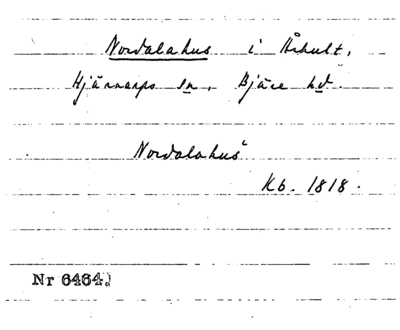 Nordalahus i Århult,
Hjärnarps sn, Bjäre hd.
Nordalahus
Kb. 1818.
Nr 6464.